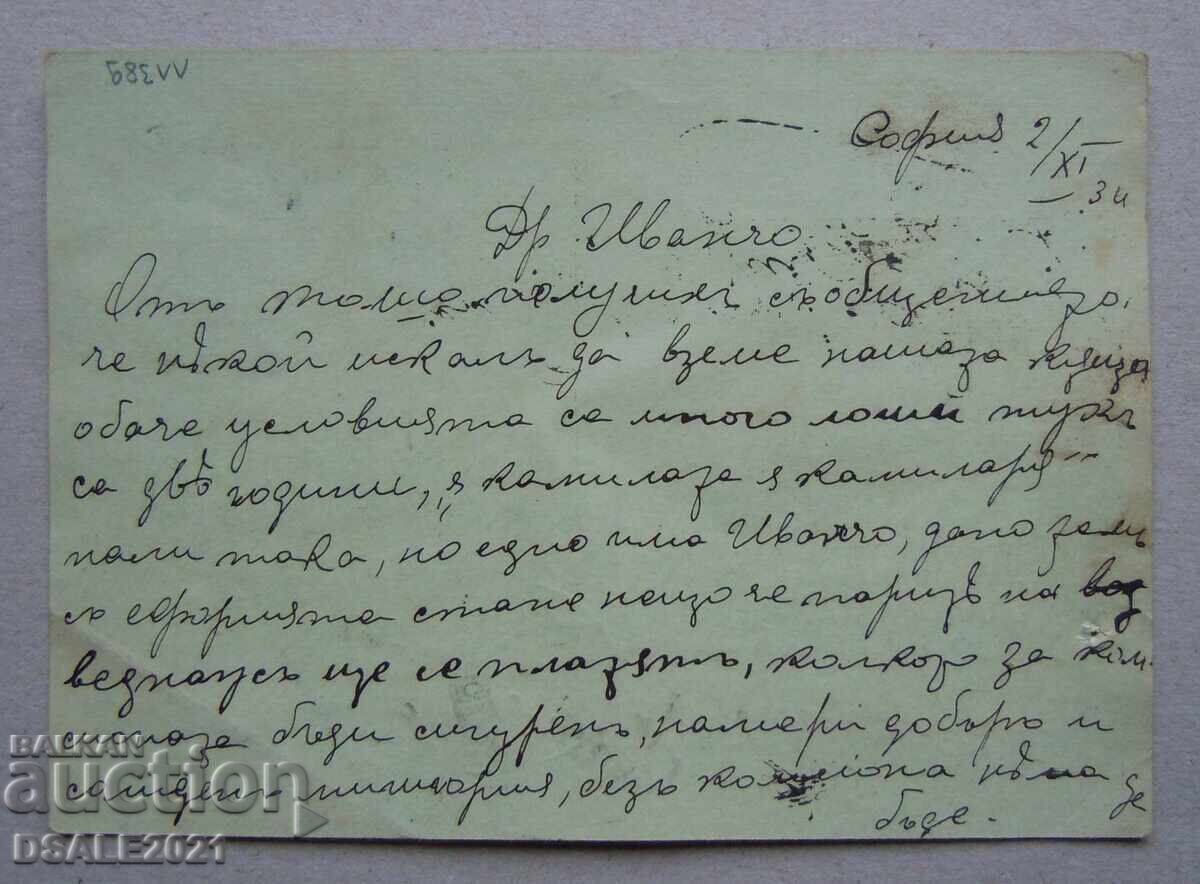 VV389
София 2/XI 34
Др Иванчо
Отъ получихъ съобщението,
че нѣкой искалъ да вземе нашата къща
обаче условията са много лоши тукъ
са двѣ години, я камилата я камиларя
пали така, но едно има Иванчо, дано
съ ефорията стане паритѣ на
веднаусъ ще се платятъ, колкото за
бъди сигуренъ, намери добъръ и
безъ комиона нѣма
бъде.
BALKAN
auction
DSALE2021